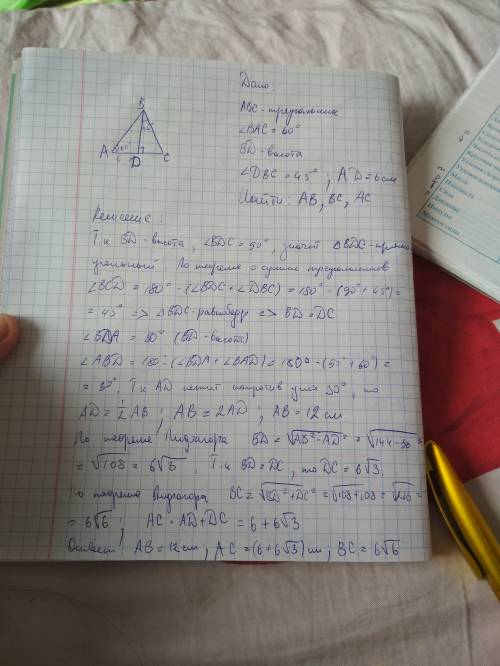 Дано:
B
45°
A 60°
6
D
C
ABC - треугольник
∠BAC = 60°
BD - высота
∠DBC = 45° ; AD = 6 см
Найти: AB, BC, AC
Решение:
Т.к BD - высота, ∠BDC = 90°, значит ΔBDC - прямо
угольный. По теореме о сумме треугольников
∠BCD = 180° - (∠BDC + ∠DBC) = 180° - (90° + 45°) =
= 45° => ΔBDC - равнобедр => BD = DC
∠BDA = 90° (BD - высота)
∠ABD = 180 - (∠BDA + ∠BAD) = 180° - (90° + 60°) =
= 30°. Т.к AD лежит напротив угла 30°, то
AD = 1/2 AB ; AB = 2AD ; AB = 12 см
По теореме Пифагора BD = √AB² - AD² = √144 - 36 =
= √108 = 6√3. Т.к BD = DC, то DC = 6√3.
По теореме Пифагора BC = √BD² + DC² = √108 + 108 = √216 =
= 6√6 ; AC = AD + DC = 6 + 6√3
Ответ: AB = 12 см ; AC = (6 + 6√3) см ; BC = 6√6
Масса
Плотность
Сила
Давление
Импульс